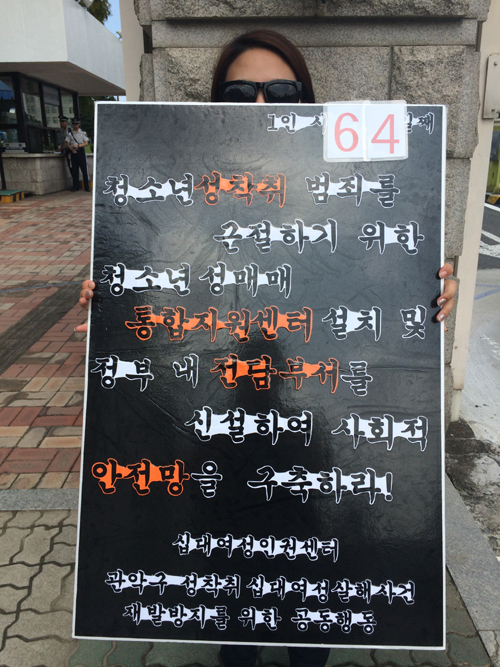 1인 64
청소년성착취 범죄를
근절하기 위한
청소년 성매매
통합지원센터 설치 및
정부 내 전담부서를
신설하여 사회적
안전망을 구축하라!
십대여성인권센터
관악구 성착취 십대여성살해사건
재발방지를 위한 공동행동